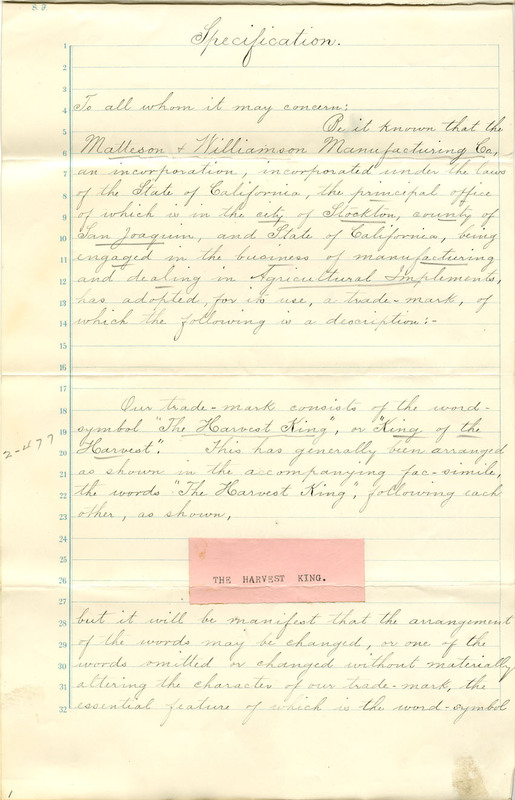 S.J.
Specification.
1
2
3
To all whom it may concern:
4
5 Be it known that the
6 Matteson & Williamson Manufacturing Co,
7 an incorporation, incorporated under the laws
8 of the State of California, the principal office
9 of which is in the city of Stockton, county of
10 San Joaquin, and State of California, being
11 engaged in the business of manufacturing
12 and dealing in Agricultural Implements,
13 has adopted, for its use, a trade-mark, of
14 which the following is a description:-
15
16
17
18 Our trade-mark consists of the word-
19 symbol "The Harvest King", or "King of the
20 Harvest". This has generally been arranged
21 as shown in the accompanying fac-simile,
22 the words "The Harvest King", following each
23 other, as shown,
2-477
24
25
26 THE HARVEST KING.
27
28 but it will be manifest that the arrangement
29 of the words may be changed, or one of the
30 words omitted or changed without materially
31 altering the character of our trade-mark, the
32 essential feature of which is the word-symbol
1